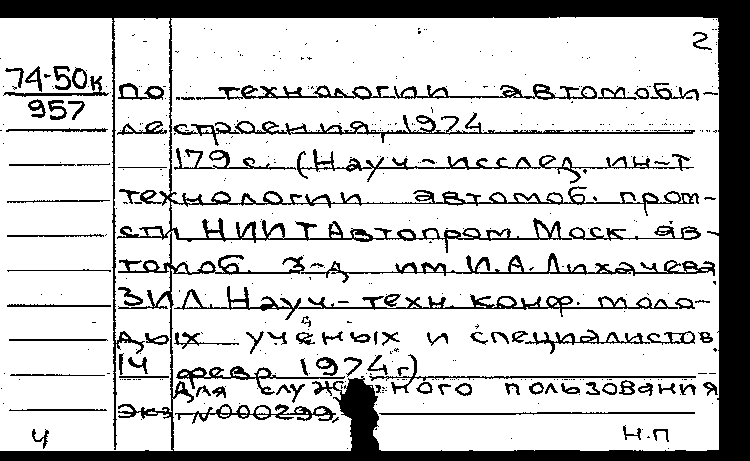 2
74-50к
957
по технологии автомоби-
лестроения, 1974.
179 с. (Науч-исслед. ин-т
технологии автомоб. пром-
сти. НИИТАвтопром. Моск. ав-
томоб. з-д им. И.А. Лихачева
ЗИЛ. Науч.- техн. конф. моло-
дых учёных и специалистов
14 февр. 1974г)
Для служебного пользования
экз. N000299.
Ч
н.п